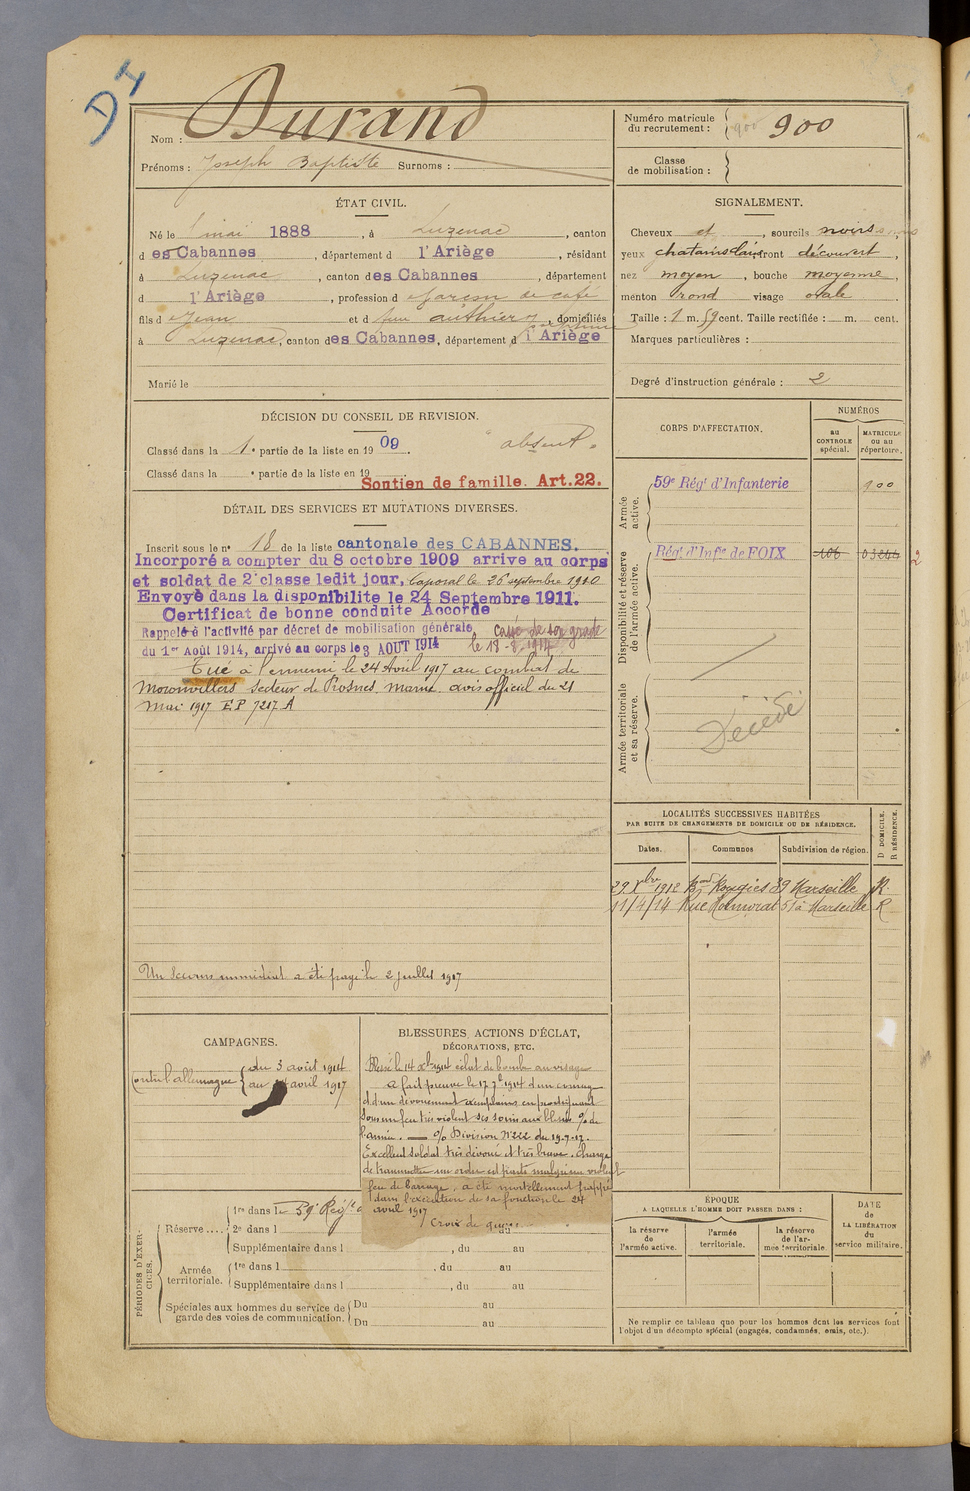 D4
Nom : Durand
Prénoms : Joseph Baptiste Surnoms :
Numéro matricule du recrutement : 900 900
Classe de mobilisation :
ÉTAT CIVIL.
Né le mai 1888, à Luzenac, canton
d es Cabannes, département d l'Ariège, résidant
à Luzenac, canton des Cabannes, département
d l'Ariège, profession d garçon de café
fils d Jean et d feu Authier, domiciliés
à Luzenac, canton des Cabannes, département d l'Ariège
Marié le
SIGNALEMENT.
Cheveux et, sourcils noirs,
yeux chatains clairs front découvert,
nez moyen, bouche moyenne,
menton rond visage ovale.
Taille : 1 m. 59 cent. Taille rectifiée : m. cent.
Marques particulières :
Degré d'instruction générale : 2
DÉCISION DU CONSEIL DE REVISION.
Classé dans la 1e partie de la liste en 1909. "absent"
Classé dans la e partie de la liste en 19
Soutien de famille. Art. 22.
DÉTAIL DES SERVICES ET MUTATIONS DIVERSES.
Inscrit sous le n° 18 de la liste cantonale des CABANNES.
Incorporé à compter du 8 octobre 1909 arrivé au corps
et soldat de 2e classe ledit jour, Caporal le 26 septembre 1910
Envoyé dans la disponibilité le 24 Septembre 1911.
Certificat de bonne conduite Accordé
Rappelé à l'activité par décret de mobilisation générale
du 1er Août 1914, arrivé au corps le 3 AOUT 1914
cassé de son grade
le 18-8-1914
Tué à l'ennemi le 24 Avril 1917 au combat de
Moronvilliers secteur de Prosnes Marne avis officiel du 21
Mai 1917 EP 7217 A
Un Secours immédiat a été payé le 2 juillet 1917
CORPS D'AFFECTATION.
NUMÉROS
au CONTROLE spécial.
MATRICULE ou au répertoire.
Armée active.
59e Régt d'Infanterie 900
Disponibilité et réserve de l'armée active.
Régt d'Infie de FOIX 106 2
Armée territoriale et sa réserve.
Décédé
LOCALITÉS SUCCESSIVES HABITÉES
PAR SUITE DE CHANGEMENTS DE DOMICILE OU DE RÉSIDENCE.
Dates.
Communes
Subdivision de région.
D DOMICILE.
R RÉSIDENCE.
29 Xbre 1912 Bard Rougies 39 Marseille R.
11/4/14 Rue 51 à Marseille R
CAMPAGNES.
Contre l'allemagne du 3 août 1914
au avril 1917
BLESSURES, ACTIONS D'ÉCLAT,
DÉCORATIONS, ETC.
Blessé le 14 Xbre 1914 éclat de bombe au visage
a fait preuve le 17 1914 d'un courage
et d'un dévouement exemplaires en prodiguant
sous un feu très violent ses soins aux blessés O/ de
l'armée. — O/ Division N°222 du 19.7.17.
Excellent soldat très dévoué et très brave. Chargé
de transmettre un ordre est parti malgré un violent
feu de barrage, a été mortellement frappé
dans l'exécution de sa fonction le 24
avril 1917
Croix de guerre
PÉRIODES D'EXERCICES.
Réserve .... 1re dans le 59e Régt
2e dans l du au
Supplémentaire dans l , du au
Armée territoriale. 1re dans l , du au
Supplémentaire dans l , du au
Spéciales aux hommes du service de garde des voies de communication. Du au
Du au
ÉPOQUE
A LAQUELLE L'HOMME DOIT PASSER DANS :
la réserve de l'armée active.
l'armée territoriale.
la réserve de l'armée territoriale.
DATE de LA LIBÉRATION du service militaire.
Ne remplir ce tableau que pour les hommes dont les services font
l'objet d'un décompte spécial (engagés, condamnés, omis, etc.).